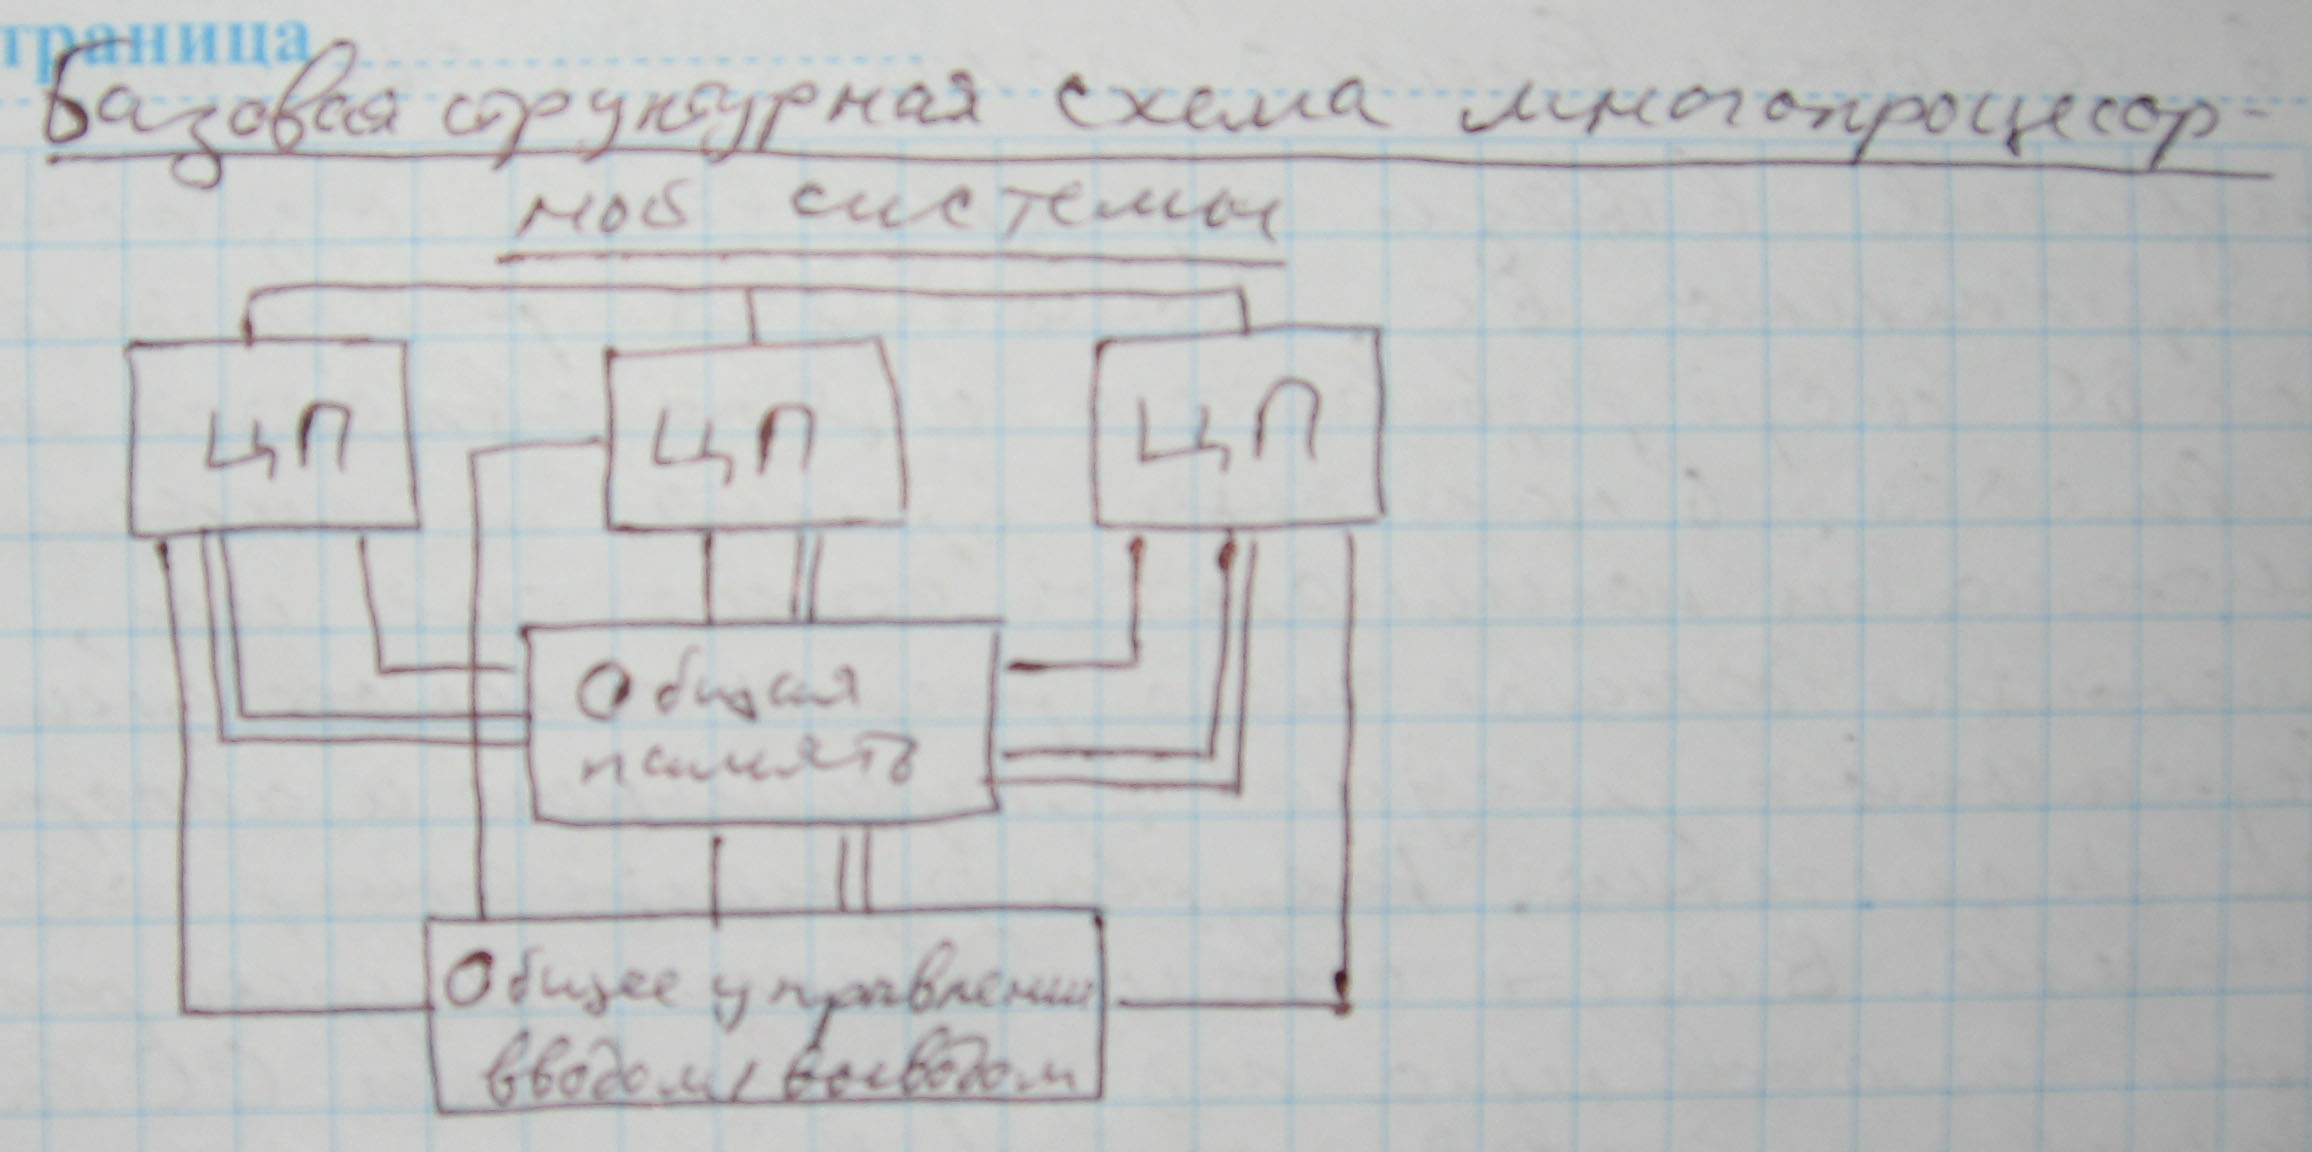 траница
Базовая структурная схема многопроцесор-
ной системы
ЦП ЦП ЦП
Общая
память
Общее управлении
вводом/выводом